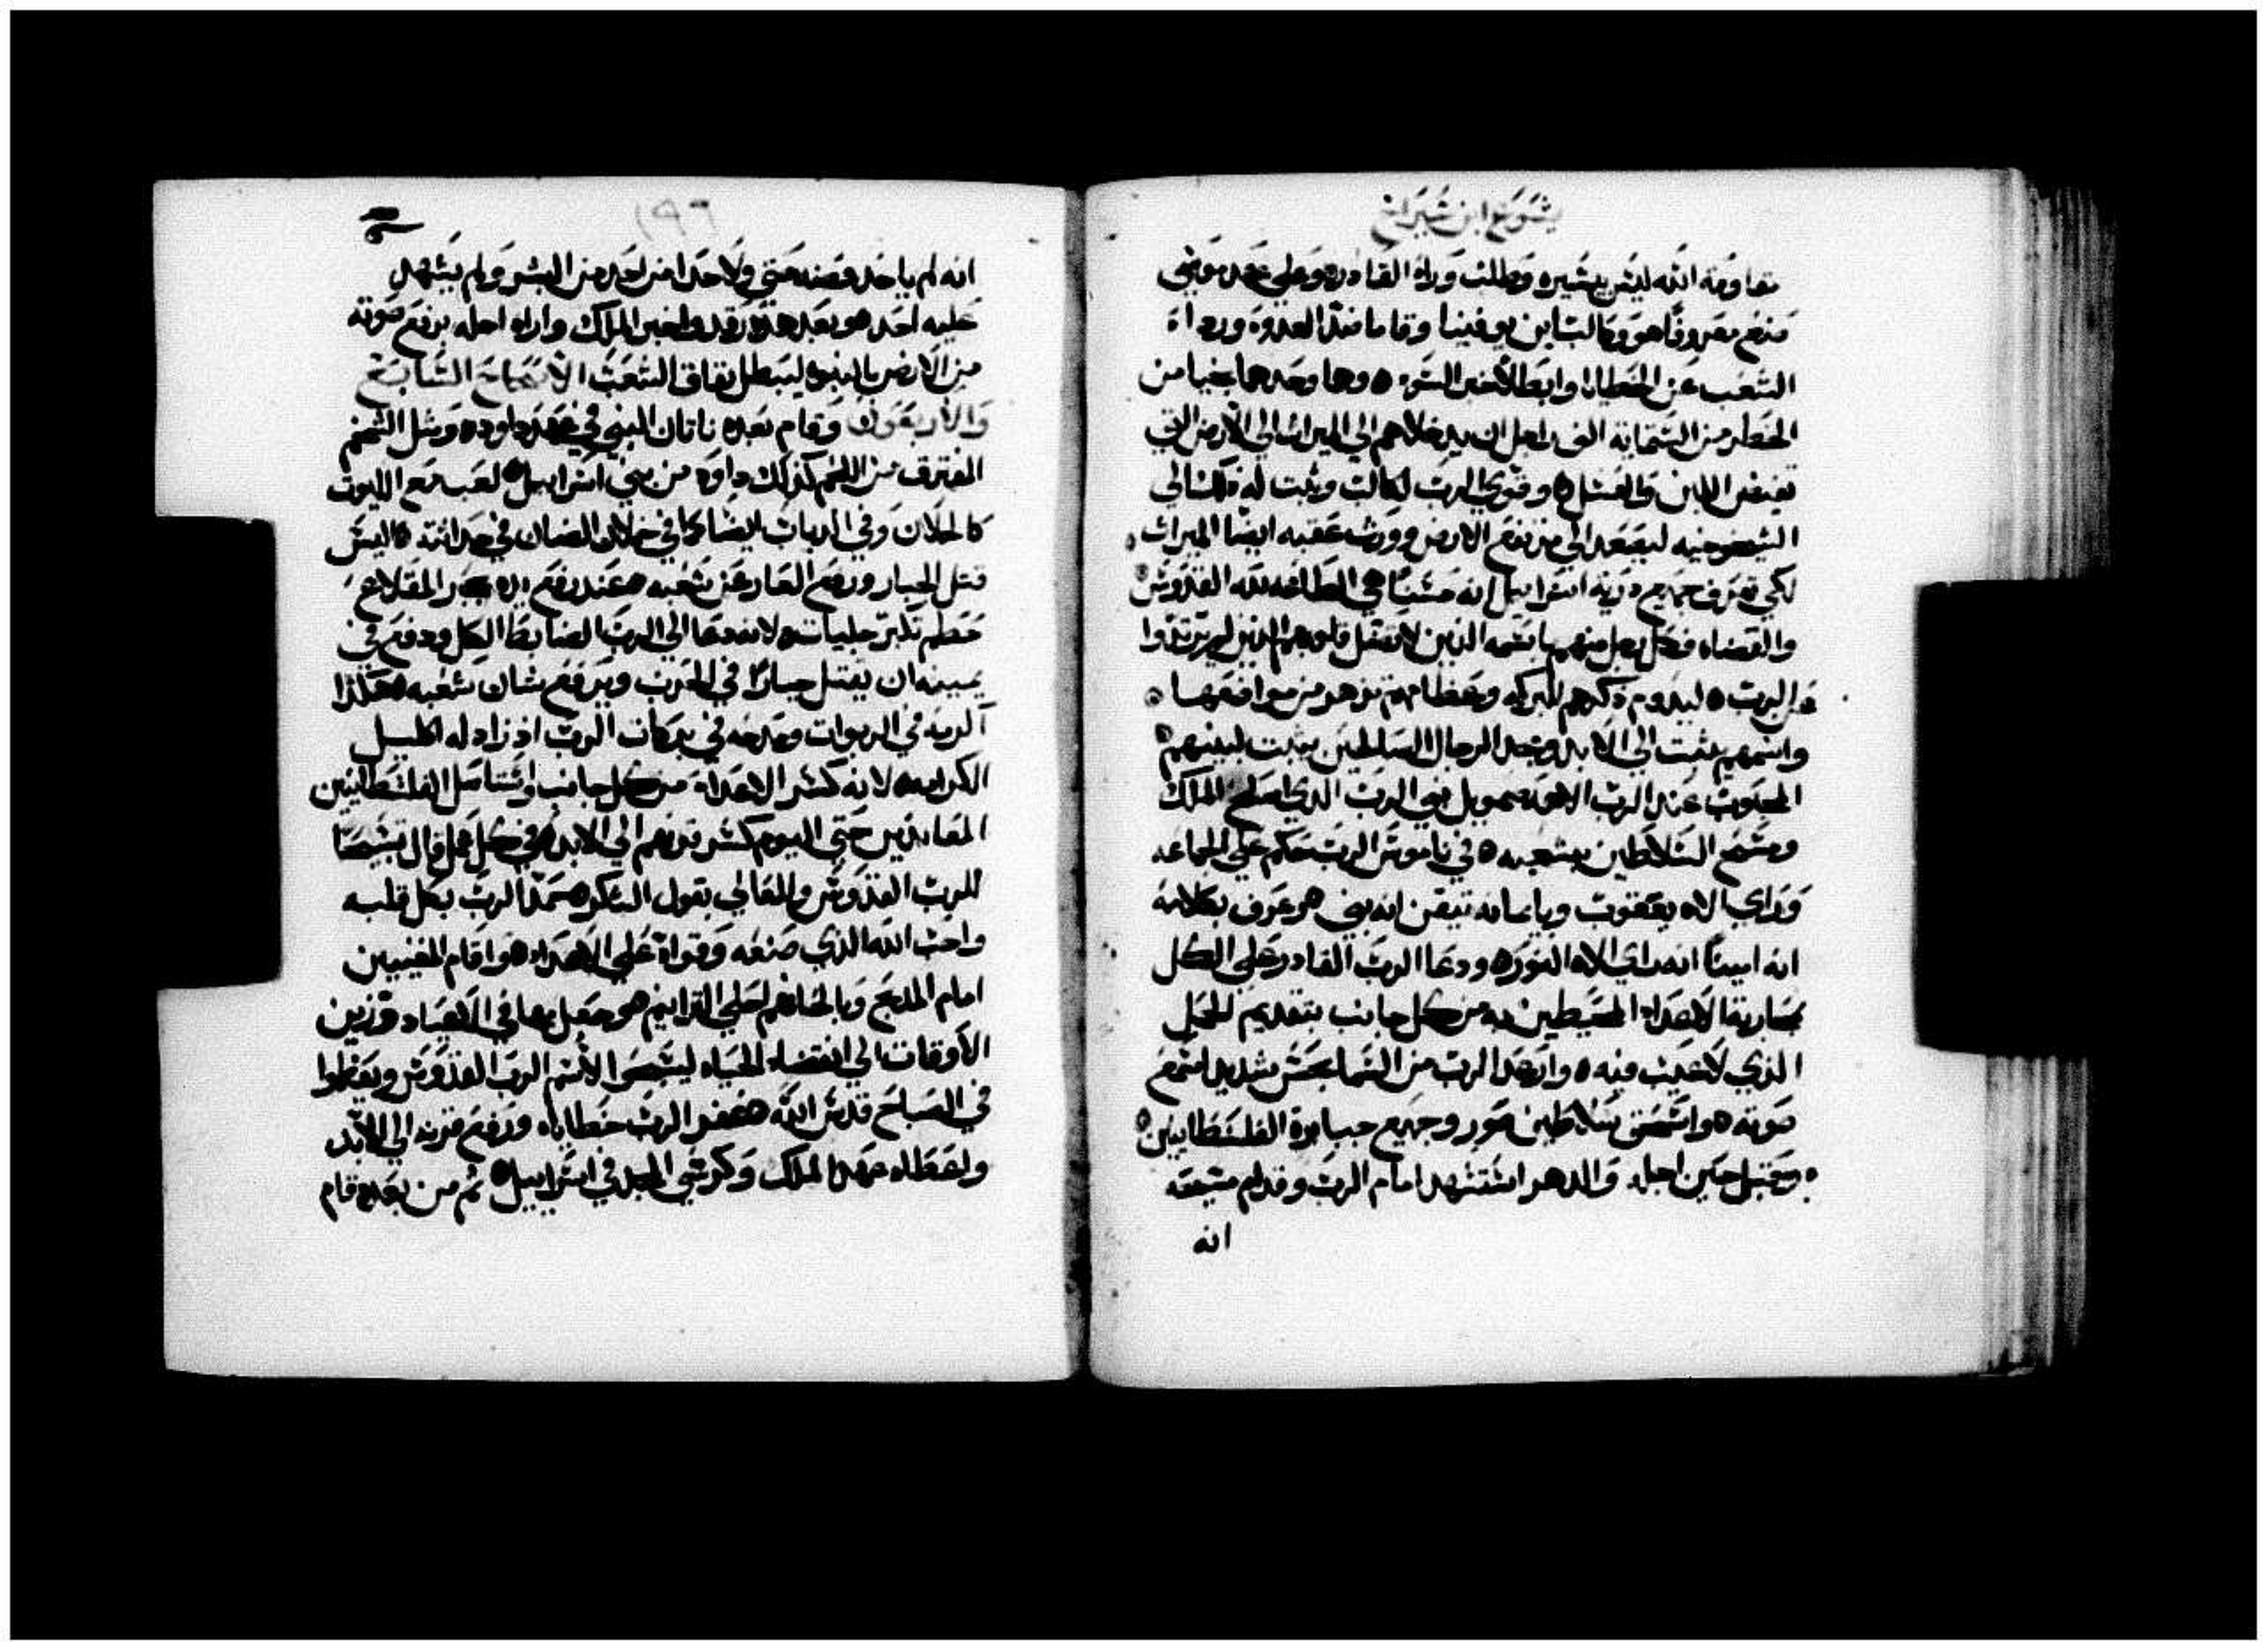 يشوع ابن شيراخ
مقاومة الله ليس بيسيره وطلب وراه القادره وعلي عهد موسي
صنع معروفًا هو وكالب ابن يوفينا وقاما ضد العدوة وردا
الشعب عن الخطايا وابطلا ضر السوء وهما وحدهما نجيا من
الخطر من الستماية الف راجل ان يدخلاهم الي الميراث الي الارض التي
تفيض اللبن والعسل وقوي الرب لكالب وثبت له ذلك الي
الشيخوخيه ليصعد الي مرتفع الارض وورث عقبه ايضا الميراث
لكي تعرف جميع درية اسراييل انه حسنًا هي الطاعه لله القدوس
والقضاه فكل رجل منهم باسمه الذين لا تضل قلوبهم الذين لم يرتدوا
عن الرب ليدوم ذكرهم للبركه وعظامهم تزهر من مواضعها
واسمهم يثبت الي الابد ومجد الرجال الصالحين يثبت لبنيهم
المحبوب عند الرب الاهه صمويل نبي الرب الذي اصلح الملك
ومسح السلاطين بشعبه في ناموس الرب حكم علي الجماعه
وراي الاه يعقوب وبايمانه تيقن انه نبي هو عرف بكلامه
انه امينًا انه راي الاه النور ودعا الرب القادر علي الكل
بمحاربة الاعداء المحيطين به من كل جانب بتقديم الحمل
الذي لا عيب فيه وارعد الرب من السما بحس شديد اسمع
صوته واسحق سلاطين صور وجميع جبابرة الفلسطانيين
وقبل حين اجله والدهر استشهد امام الرب وقدام مسيحه
انه
١٩٦
انه لم ياخد فضه حتي ولا حدا من احد من البشر ولم يشهد
عليه احد هو بعد هذا رقد واخبر الملك واراه اجله يرفع صوته
من الارض بالنبوه ليبطل نفاق الشعب الاصحاح السابع
والاربعون وقام بعده ناتان النبي في عهد داود ومثل الشحم
المفترق من اللحم كذلك داود من بني اسراييل لعب مع الليوث
كالحملان وفي الدباب ايضا كما في خلان الضان في حداثته اليس
قتل الجبار ورفع العار عن شعبه عند رفع يده بحجر المقلاع
حطم تكبر جليات لانه دعا الي الرب الضابط الكل ودفع في
يمينه ان يقتل جبارًا في الحرب ويرفع شان شعبه هكذا
اكرمه في الربوات ومدحه في بركات الرب اذ زاد له اكليل
الكرامه لانه كسر الاعداء من كل جانب واستاصل الفلسطانيين
المعاندين حتي اليوم كسر قرنهم الي الابد في كل عمل قال تسبيحًا
للرب القدوس والعالي بقول الذكر حمد الرب بكل قلبه
واحب الله الذي صنعه وقواه علي الاعداء هو اقام المغنيين
امام المدبح وبالحانهم احلي الترانيم هو جعل بها في الاعياد وزين
الاوقات الي انقضاء الحياه ليسبحوا لاسم الرب القدوس ويعظموا
في الصباح قدس الله هو غفر الرب خطاياه ورفع قرنه الي الابد
واعطاه عهد الملك وكرسي المجد في اسراييل ثم من بعده قام